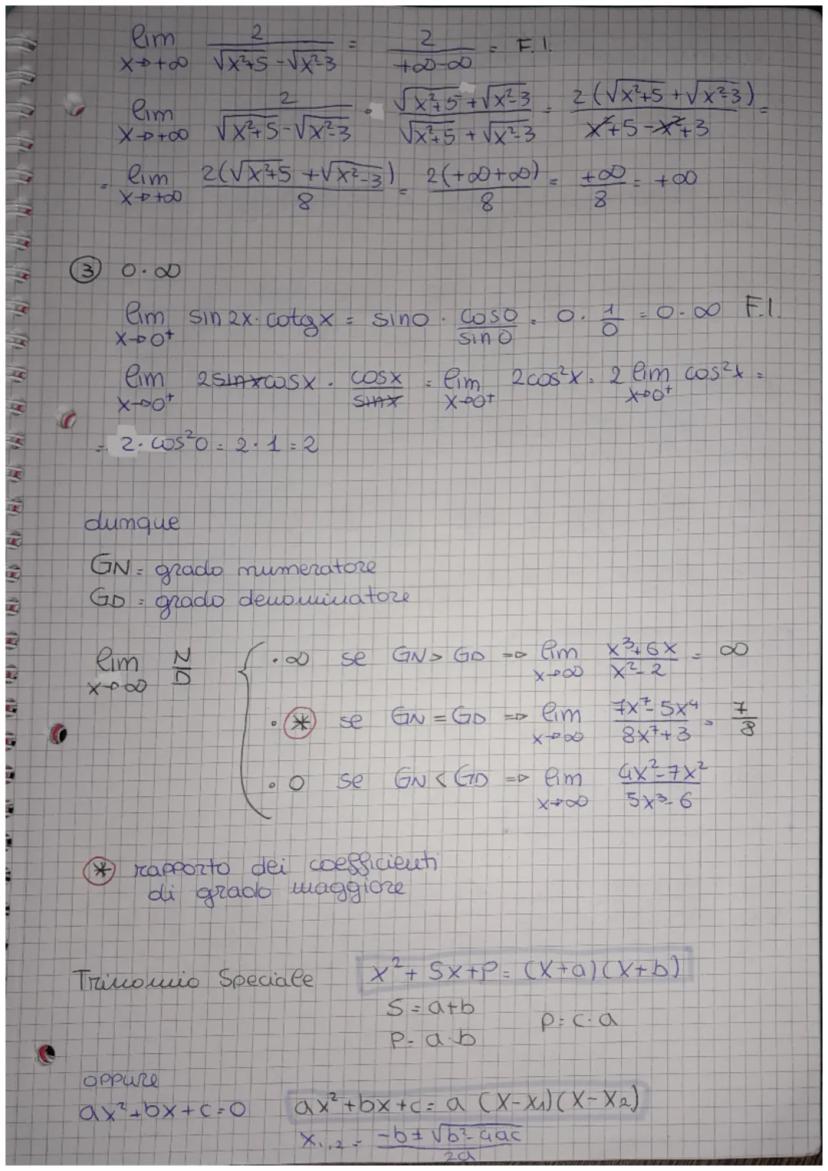 lim x→+∞ 2/(√x²+5 - √x²-3) = 2/(+∞-∞) = F.I.
lim x→+∞ 2/(√x²+5 - √x²-3) · (√x²+5 + √x²-3)/(√x²+5 + √x²-3) = 2(√x²+5 + √x²-3)/(x²+5-x²+3) =
= lim x→+∞ 2(√x²+5 + √x²-3)/8 = 2(+∞+∞)/8 = +∞/8 = +∞
③ 0·∞
lim x→0⁺ sin2x·cotgx = sin0 · cos0/sin0 = 0·1/0 = 0·∞ F.I.
lim x→0⁺ 2sinxcosx · cosx/sinx = lim x→0⁺ 2cos²x = 2 lim x→0⁺ cos²x =
= 2·cos²0 = 2·1 = 2
dunque
GN = grado numeratore
GD = grado denominatore
lim x→∞ N/D { · ∞ se GN > GD => lim x→∞ (x³+6x)/(x²-2) = ∞
· * se GN = GD => lim x→∞ (7x⁷-5x⁴)/(8x⁷+3) = 7/8
· 0 se GN < GD => lim x→∞ (4x²-7x²)/(5x³-6)
* rapporto dei coefficienti
di grado maggiore
Trinomio Speciale x²+Sx+P = (x+a)(x+b)
S = a+b
P = a·b p = c·a
oppure
ax²+bx+c=0 ax²+bx+c = a (x-x₁)(x-x₂)
x₁,₂ = (-b±√b²-4ac)/2a